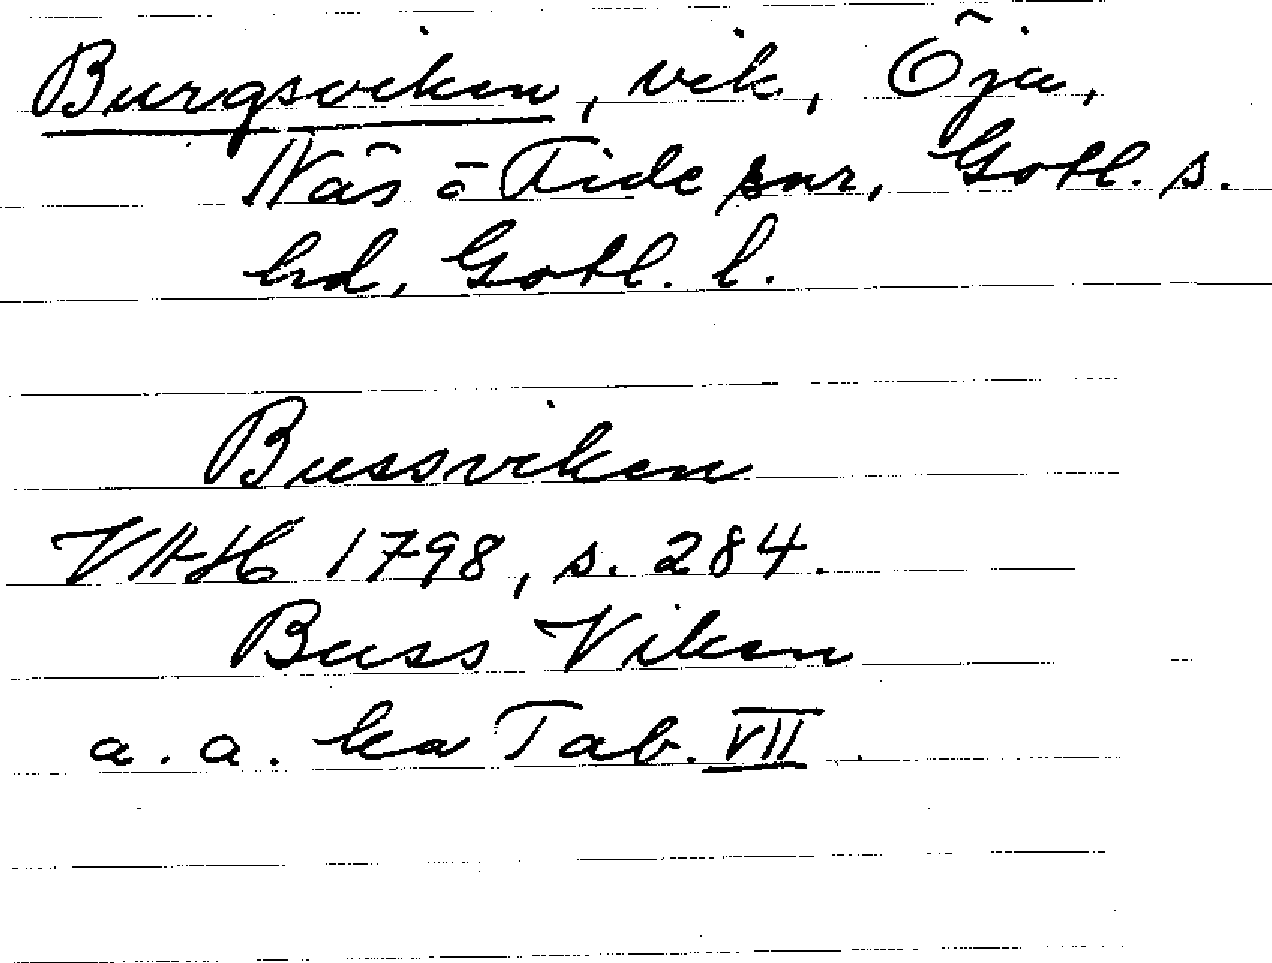 Burgsviken, vik, Öja,
Näs o Fide snr, Gotl. s.
hd, Gotl. l.
Bussviken
VAH 1798, s. 284.
Buss Viken
a. a. ka Tab. VII.